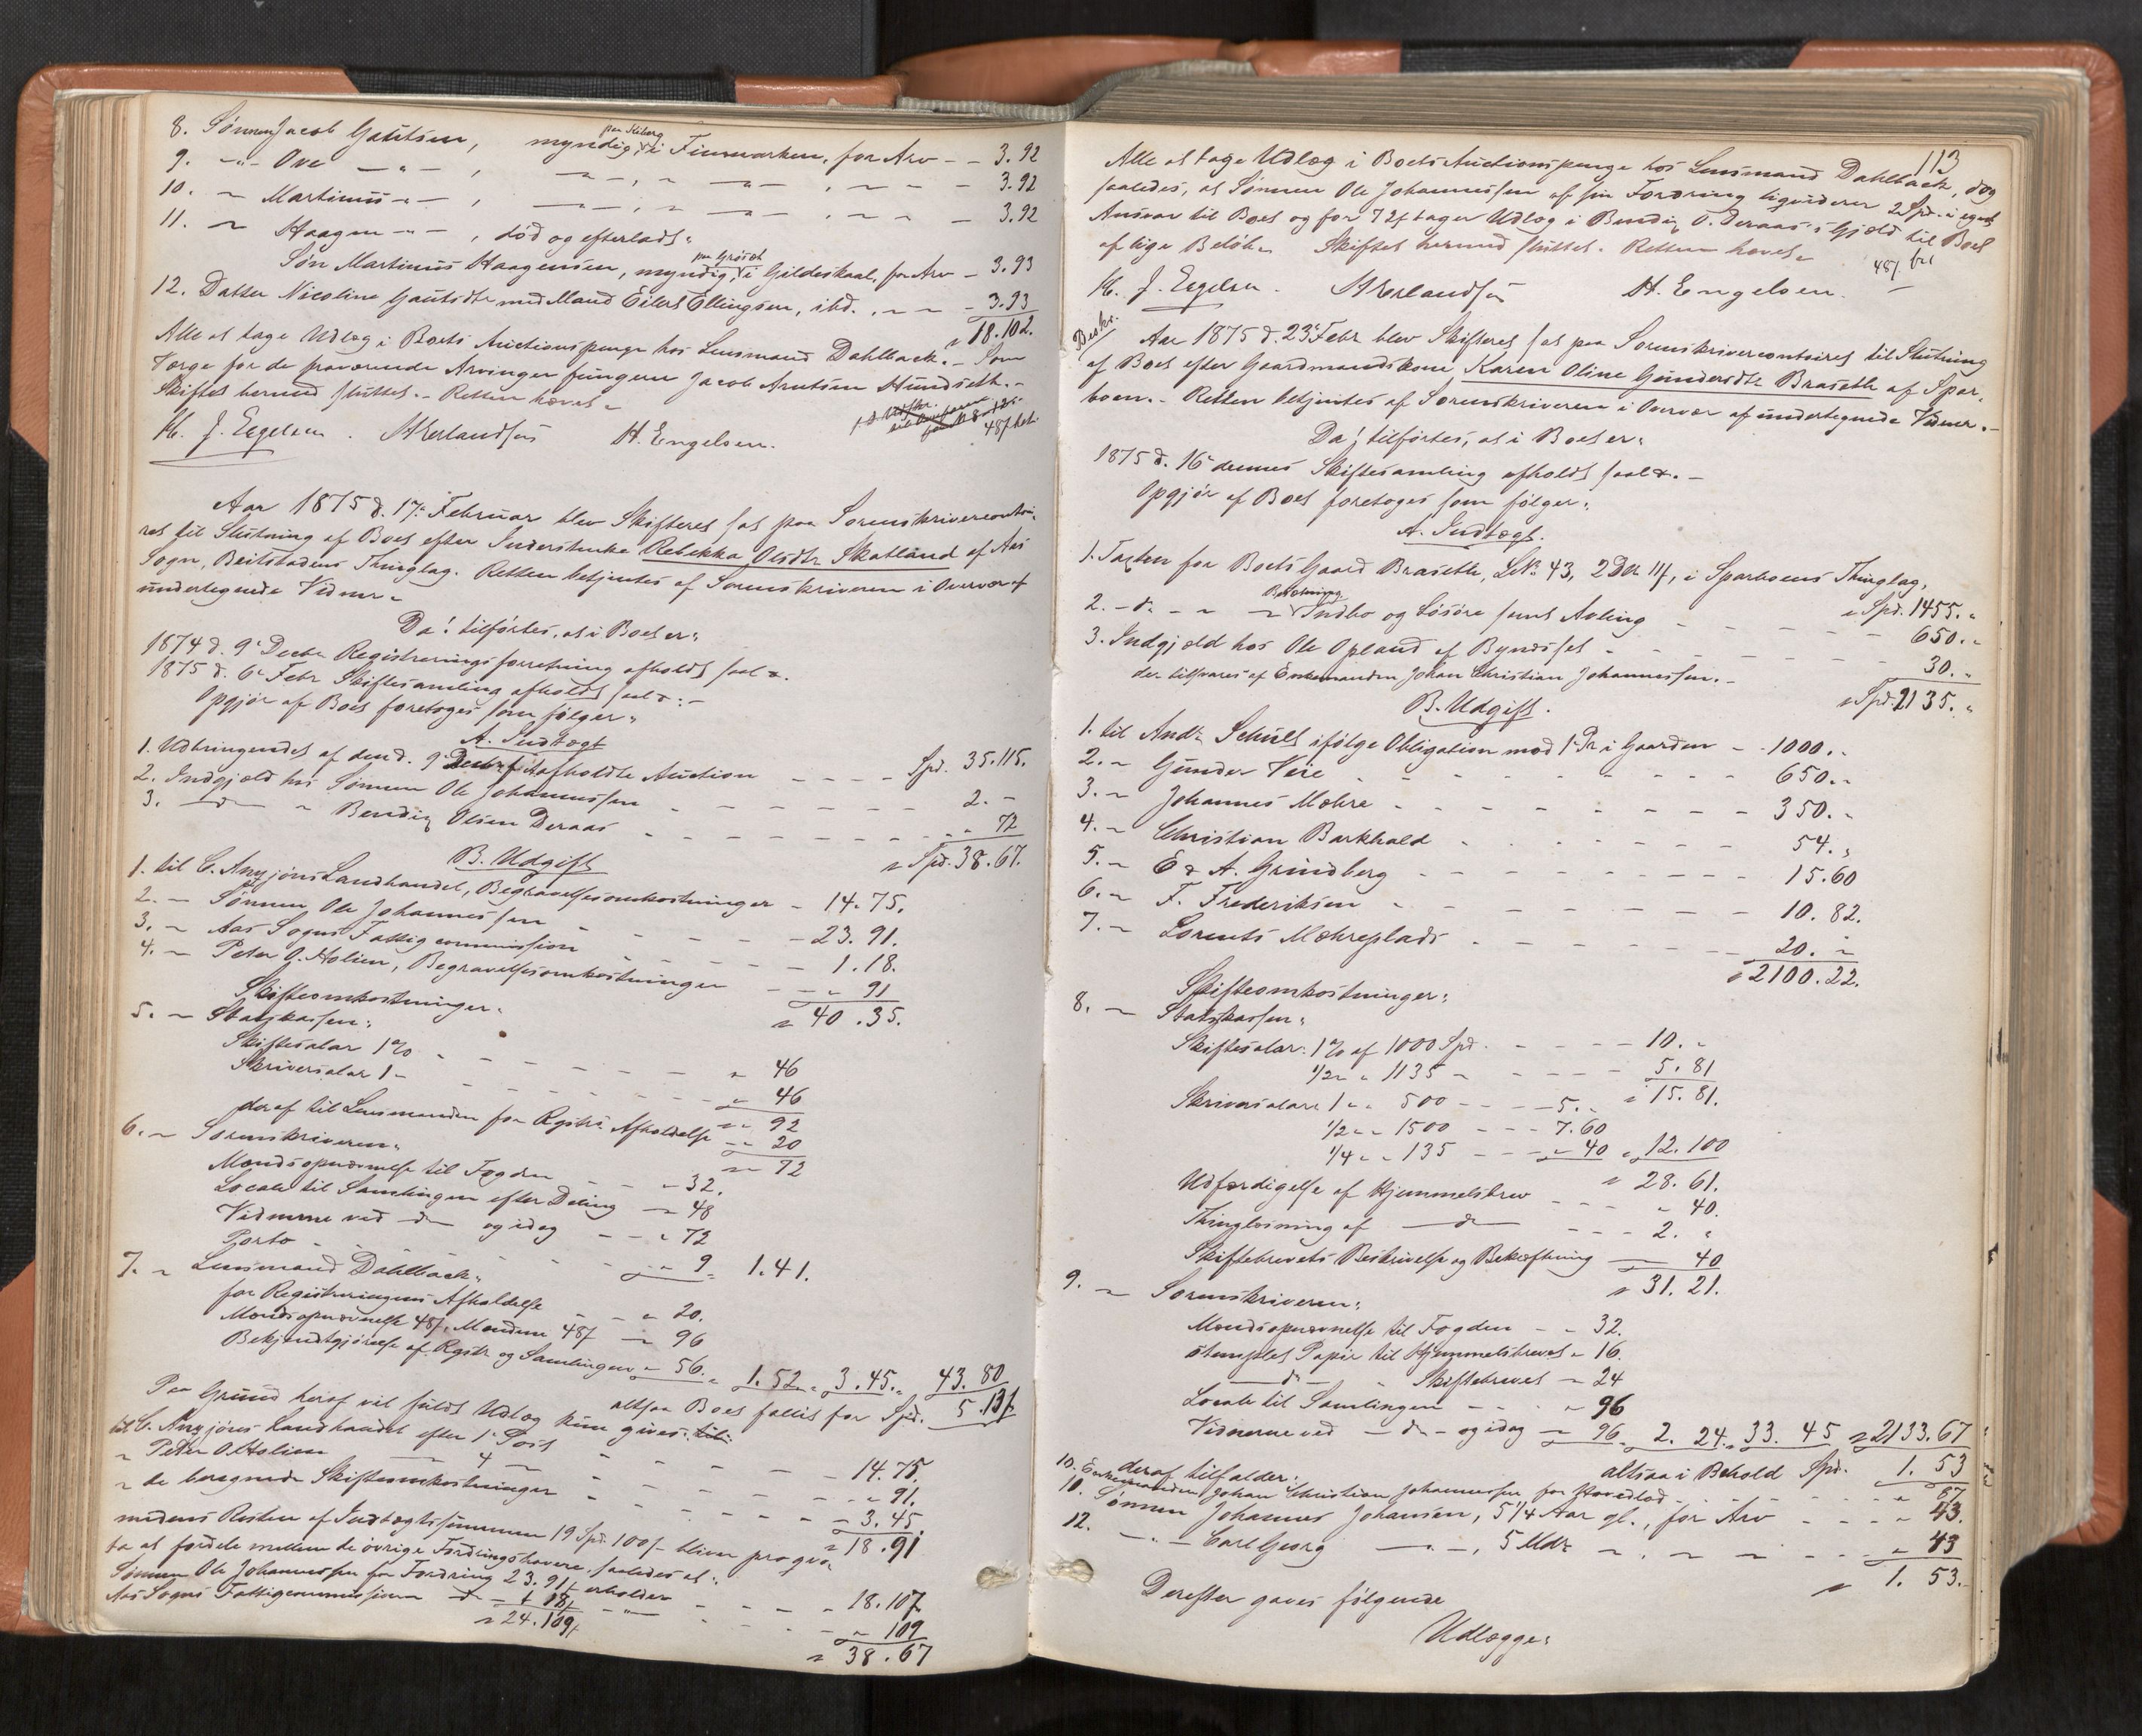 8. Sønnen Jacob Gautsen, myndig, paa Kiberg i Finmarken, for Arv - - 3.92
9. -"- Ove -"- , -"- , " -"- , " - - 3.92
10. " Martinus -"- , -"- , " -"- , " " - 3.92
11. " Haagen -"- , død og efterladt:
Søn Martinus Haagensen, myndig, paa i Gildeskaal, for Arv - 3.93
12. Datter Nicoline Gautsdtr med Mand Eilert Ellingsen, ibd. , " " - 3.93
" 18.102.
Alle at tage Udlæg i Boets Auctionspenge hos Lensmand Dahlback. - Som
Værge for de fraværende Arvinger fungerer Jacob Arntsen Hundseth. -
Skiftet hermed sluttet. - Retten hævet.
J. Eegelsen. A Erlandsen H. Engelsen.
Aar 1875 d. 17de Februar blev Skifteret sat paa Sorenskrivercontoi-
ret til Slutning af Boet efter Inderstenke Rebekka Olsdtr Skatland af Aas
Sogn, Beitstadens Thinglag. Retten betjentes af Sorenskriveren i Overvær af
undertegnede Vidner.
Da! tilførtes, at i Boet er:
1874 d. 9de Decbr Registreringsforretning afholdt saal.
1875 d. 6te Febr Skiftesamling afholdt saal. : -
Opgjør af Boet foretoges som følger:
A. Indtægt
1. Udbringendet af den d. 9de Decbr f. A. afholdte Auction - - - - Spd. 35.115.
2. Indgjæld hos Sønnen Ole Johannessen - - - - - - 2. -
3. -do- " Bendix Olsen Deraas - - - - - - " 72
" Spd. 38.67.
B. Udgift
1. til C. Anzjøns Landhandel, Begravelsesomkostninger - 14.75.
2. - Sønnen Ole Johannessen - - - - 23.91.
3. - Aas Sogns Fattigcommission - - - - 1.18.
4. - Peter O. Holien, Begravelsesomkostninger - - " 91
" 40.35.
Skifteomkostninger:
5. - Statskassen:
Skiftesalar 1% - - - - - " 46
Skriversalar 1 - - - - - " 46
" 92
deraf til Lensmanden for Registrs Afholdelse " 20
" 72
6. - Sorenskriveren:
Mændsopnævnelse til Fogden - - " 32.
Locale til Samlingen efter Deling - " 48
Vidnerne ved -do- og idag - - " 72
Porto - - - - " 9 " 1.41.
7. - Lensmand Dahlback:
for Registreringens Afholdelse - - " 20.
Mændsopnævnelse 48 ß, Mændene 48 ß - " 96
Bekjendtgjørelse af Registr og Samlingen " 56. " 1.52 " 3.45. " 43.80
altsaa Boet fallit for Spd. 5.13 ß
Paa Grund heraf vil fuldt Udlæg kun gives til:
til C. Anzjøns Landhandel efter 1ste Post - - - - - 14.75.
" Peter O. Holien — 4 — - - - - " 91.
" de beregnede Skifteomkostninger - - - - - 3.45.
" 18.91
medens Resten af Indtægtssummen 19 Spd. 100 ß bliver pro quo-
ta at fordele mellem de øvrige Fordringshavere, saaledes at:
Sønnen Ole Johannessen for Fordring 23.91 ß erholder - - - - 18.107.
Aas Sogns Fattigcommission -do- 1.18 ß -"- - - - " 109
" 24.109 ß " 38.67
113
Alle at tage Udlæg i Boets Auctionspenge hos Lensmand Dahlback, dog
saaledes, at Sønnen Ole Johannessen af sin Fordring liqviderer 2 Spd. i eget
Ansvar til Boet og for 72 ß tager Udlæg i Bendix O. Deraas's Gjæld til Boet
af lige Beløb. Skiftet hermed sluttet. Retten hævet.
48 ß bet
J. Eegelsen. A Erlandsen H. Engelsen.
Beskr.
Aar 1875 d. 23de Febr blev Skifteret sat paa Sorenskrivercontoiret til Slutning
af Boet efter Gaardmandskone Karen Oline Gundersdtr Braseth af Spar-
boen. - Retten betjentes af Sorenskriveren i Overvær af undertegnede Vidner. -
Da! tilførtes, at i Boet er:
1875 d. 16de dennes Skiftesamling afholdt saal. -
Opgjør af Boet foretoges som følger:
A. Indtægt.
1. Taxten for Boets Gaard Braseth, L.No. 43, 2 Dlr 11 ß, i Sparboens Thinglag, " Spd. 1455. "
2. - do - " " Besætning Indbo og Løsøre samt Avling - - - - - - 650. "
3. Indgjæld hos Ole Opland af Byneset - - - - - 30. "
der tilsvares af Enkemanden Johan Christian Johannessen. -
" Spd. 2135. "
B. Udgift.
1. til Andr. Schult ifølge Obligation med 1ste Pr. i Gaarden - - 1000. "
2. - Gunder Veie - - - - - - 650. "
3. - Johannes Mæhre - - - - - - 350. "
4. - Christian Barkhald - - - - - - 54. "
5. - E & A. Grundberg - - - - - - 15.60
6. - F. Frederiksen - - - - - - 10.82.
7. - Lorents Mæhreplads - - - - - 20. "
" 2100.22.
Skifteomkostninger:
8. - Statskassen:
Skiftesalar: 1% af 1000 Spd. - - - - 10. "
1/2 " " 1135 " - - - - 5.81
" 15.81.
Skriversalar: 1 " " 500 - - - 5. "
1/2 " " 1500 - - - 7.60
1/4 " " 135 - - - " 40 " 12.100
" 28.61.
Udfærdigelse af Hjemmelsbrev - - - " 40.
Thinglæsning af -do- - - - 2. "
Skiftebrevets Beskrivelse og Bekræftning - " 40
" 31.21.
9. - Sorenskriveren:
Mændsopnævnelse til Fogden - - " 32.
stemplet Papir til Hjemmelsbrevet " 16.
-do- " Skiftebrevet - 24
Locale til Samlingen - - - " 96
Vidnerne ved -do- og idag " 96 " 2.24. " 33.45 " 2133.67
altsaa i Behold Spd. 1.53
deraf tilfalder:
10. Enkemanden Johan Christian Johannessen for Hovedlod - - - " 67
10. Sønnen Johannes Johansen, 5 1/4 Aar gl., for Arv - - - - " 43.
12. -"- Carl Georg -"- , 5 Mdr " , " " - - - " 43
" 1.53.
Derefter gaves følgende
Udlægge: